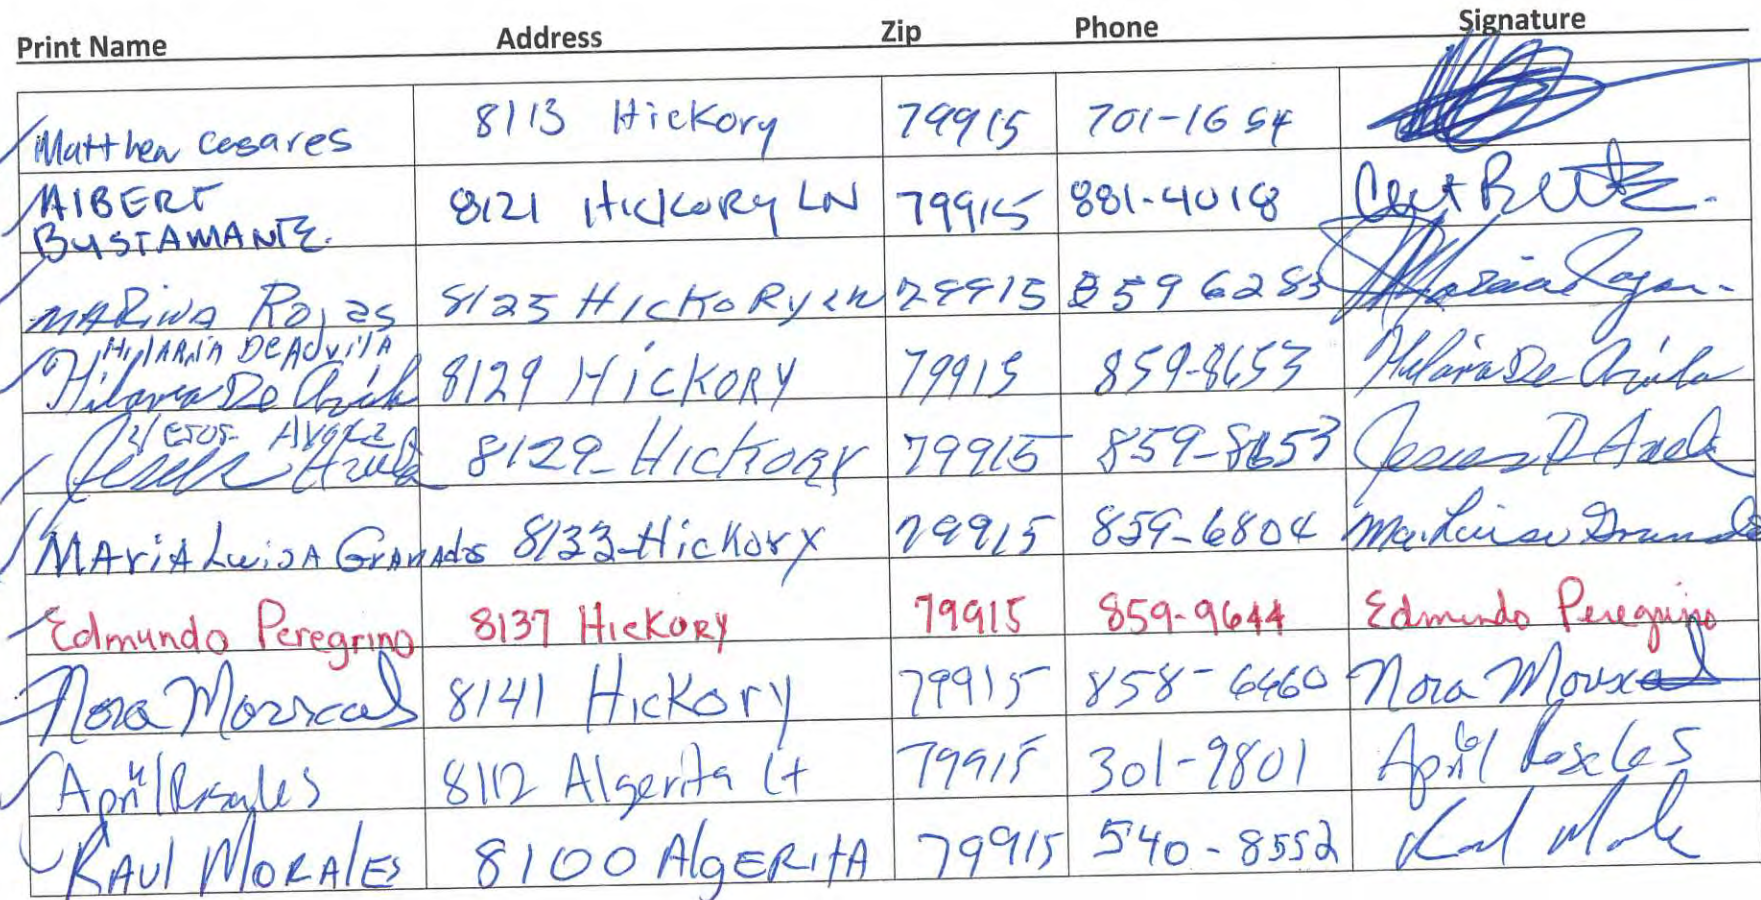 Print Name Address Zip Phone Signature
Matthew Casares 8113 Hickory 79915 701-1654
AlBERT BUSTAMANTE. 8121 HickoRy LN 79915 881-4018
MARiNA Rojas 8125 HIckoRy LN 79915 859 6283
HilARiA DeAvilA
Hilaria De Avila 8129 HicKORY 79915 859-8653 Hilaria De Avila
Jesus Avila
Jesus Avila 8129 Hickory 79915 859-8653 Jesus D Avila
MAriA LuisA GrANAdos 8133 Hickory 79915 859-6804 Ma. Luisa Granados
Edmundo Peregrino 8137 HicKoRy 79915 859-9644 Edmundo Peregrino
Nora Mariscal 8141 Hickory 79915 858-6460 Nora Mariscal
April Rosales 8112 Algerita Ct 79915 301-9801 April Rosales
RAUl MORAlES 8100 AlgERitA 79915 540-8552